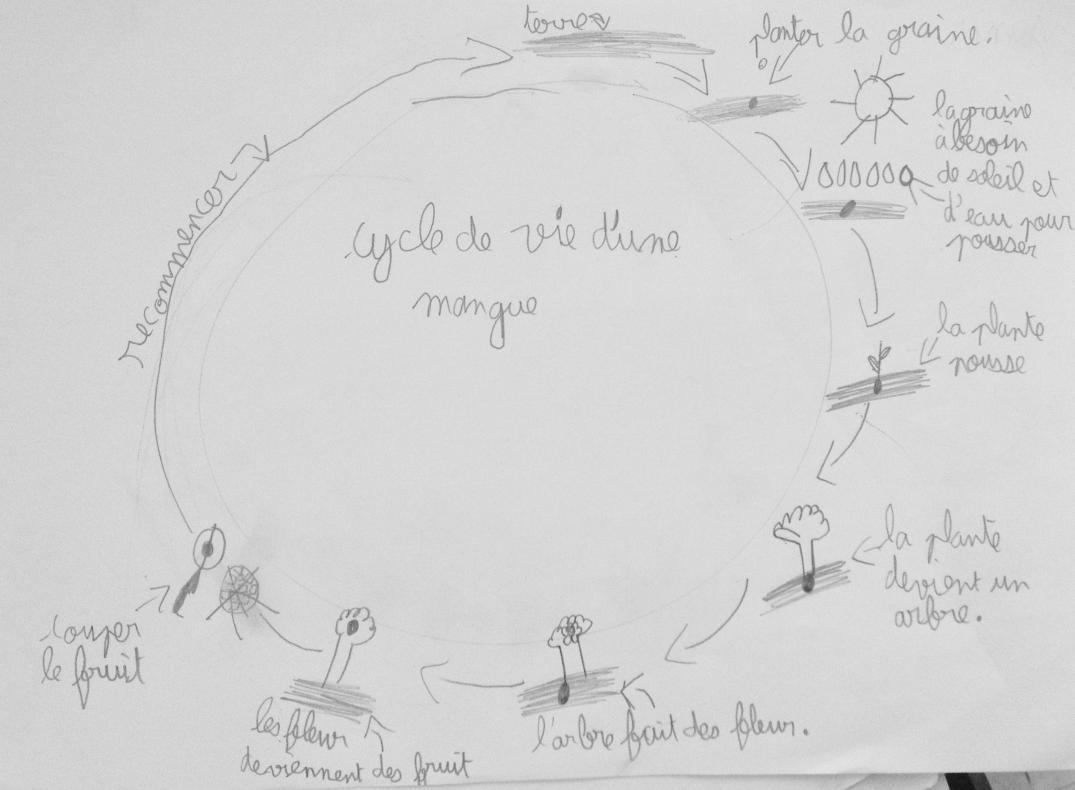 terre
planter la graine.
la graine
à besoin
de soleil et
d'eau pour
pousser
cycle de vie d'une
mangue
la plante
pousse
la plante
devient un
arbre.
l'arbre fruit des fleur.
les fleur
deviennent des fruit
couper
le fruit
recommencer